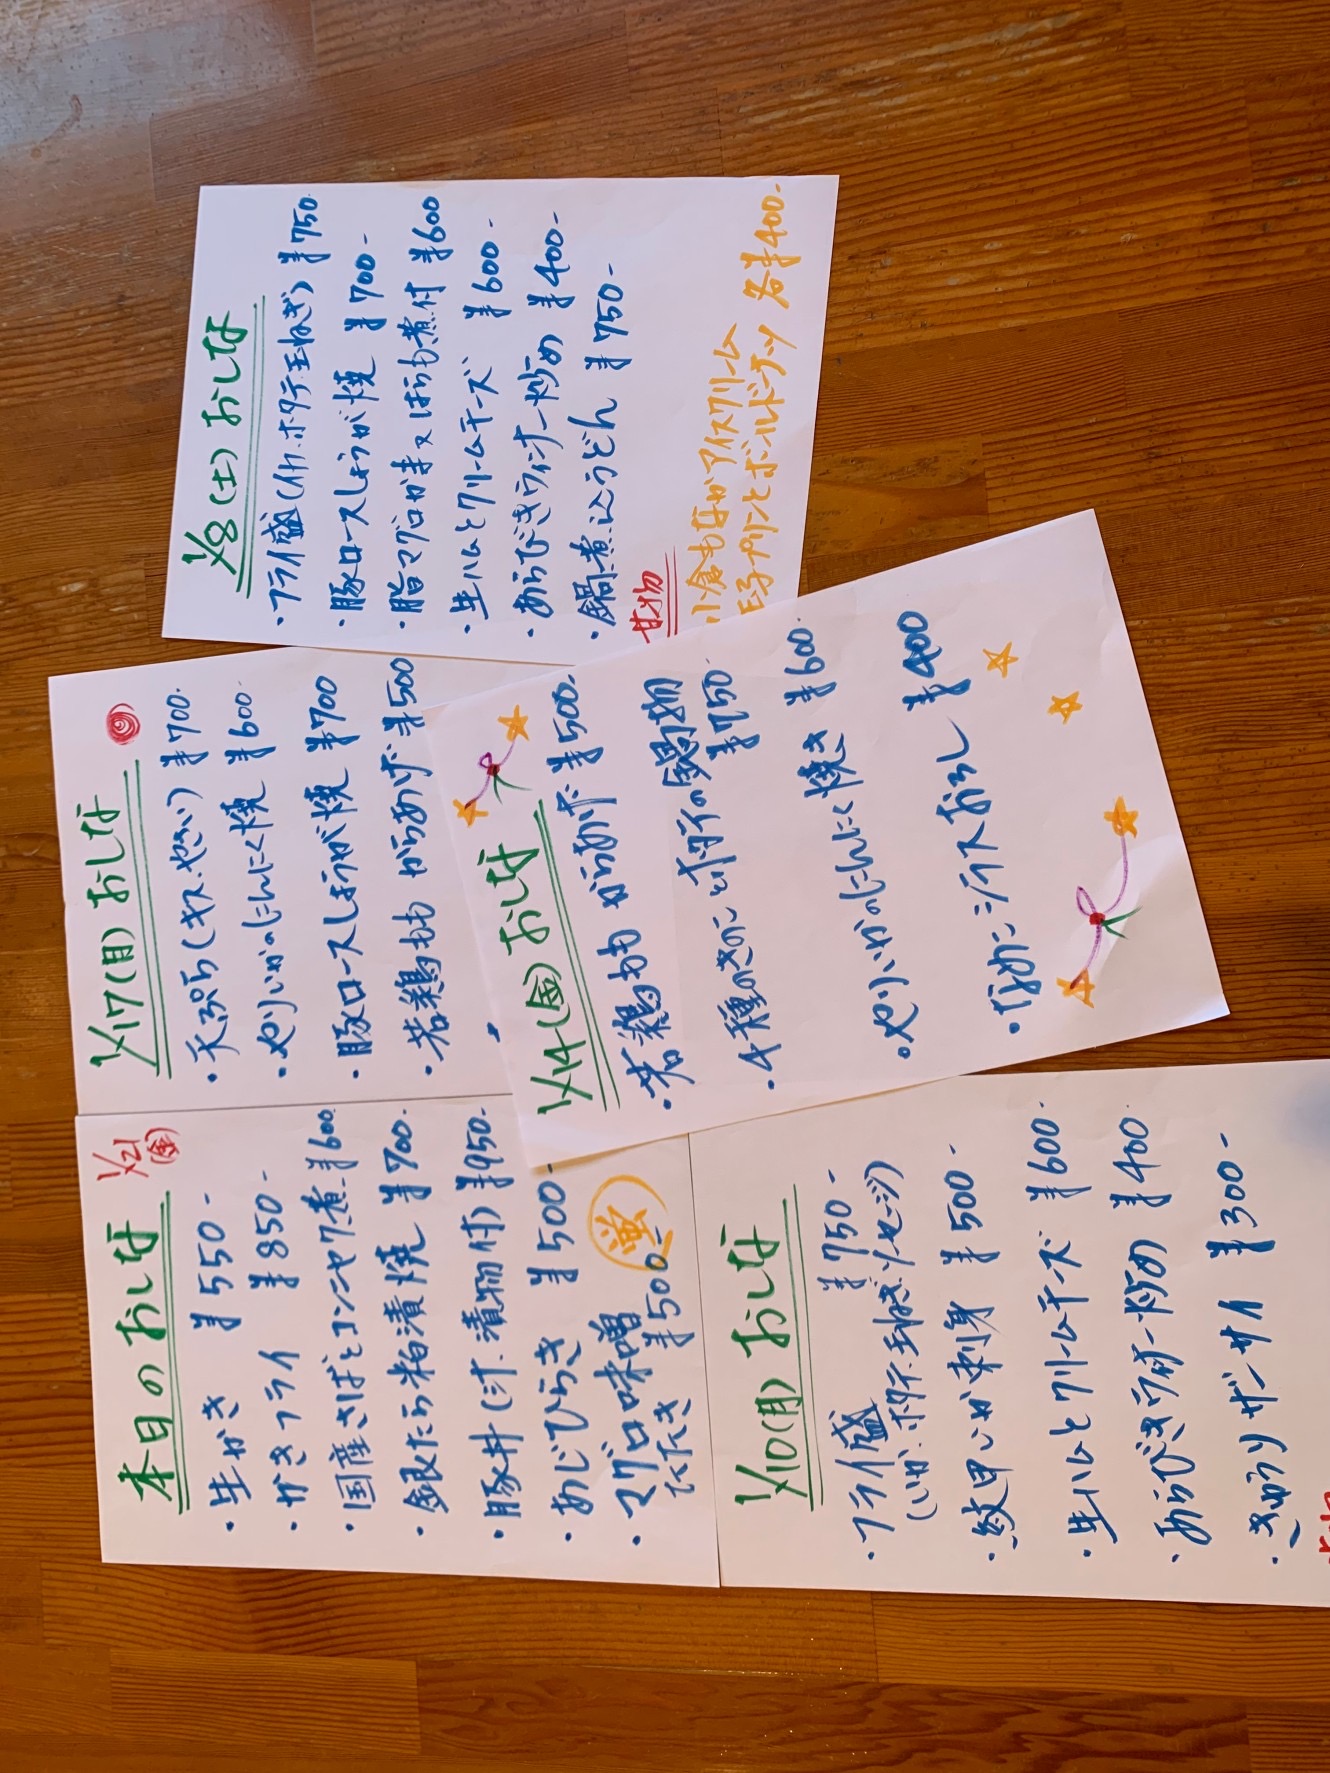 1/8(土)おしな
・フライ盛(イカ.ホタテ.玉ねぎ) ¥750.
・豚ロースしょうが焼 ¥700-
・脂マグロかま又はらも煮付 ¥600
・生ハムとクリームチーズ ¥600-
・あらびきウィンナー炒め ¥400-
・鍋煮込うどん ¥750-
甘物
小倉もなかアイスクリーム
玉子プリンとボールドーナツ 各¥400-
1/17(月)おしな
・天ぷら(キス.やさい) ¥700.
・やりいかのにんにく焼 ¥600.
・豚ロースしょうが焼 ¥700
・若鶏もも からあげ ¥500
1/14(金)おしな
・若鶏もも からあげ ¥500.
・4種のきのことホタテの鍋物
¥750.
・やりいかのにんにく焼き ¥600.
・なめこジラスおろし ¥400
本日のおしな 1/21
(金)
・生かき ¥550-
・かきフライ ¥850-
・国産さばとコンニャク煮 ¥600.
・銀たら粕漬焼 ¥700.
・豚丼(ミニ汁.漬物付) ¥950-
・あじひらき ¥500-
・マグロ味噌
たたき ¥500-
1/10(月)おしな
・フライ盛 ¥750-
(いか.ホタテ.玉ねぎ.ソーセージ)
・紋甲いか刺身 ¥500-
・生ハムとクリームチーズ ¥600-
・あらびきウィンナー炒め ¥400
・きゅうりザーサイ ¥300-